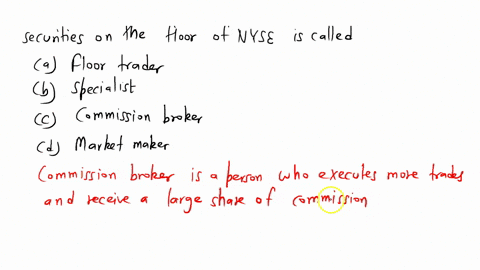 securities on the floor of NYSE is called
(a) Floor trader
(b) Specialist
(c) Commission broker
(d) Market maker
Commission broker is a person who executes more trades
and receive a large share of commission